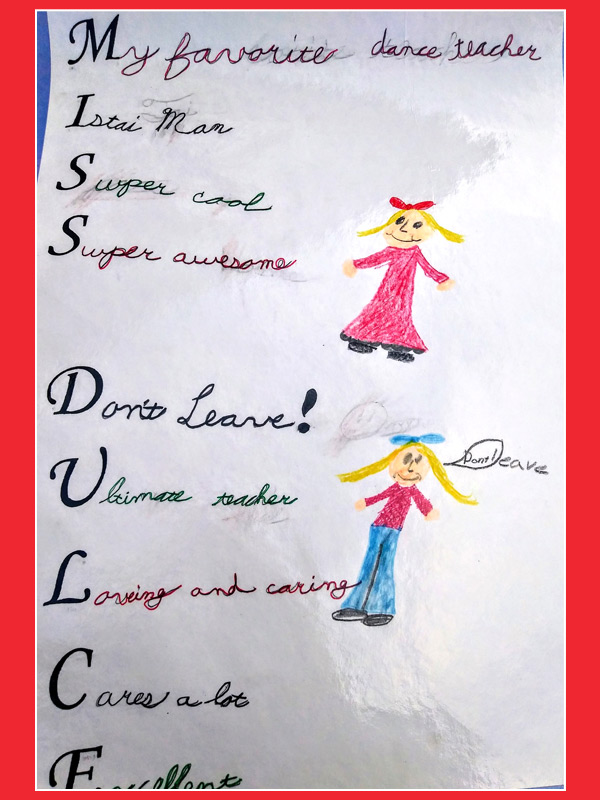 My favorite dance teacher
Istai Man
Super cool
Super awesome
Don't Leave!
Ultimate teacher
Don't! Leave
Loveing and caring
Cares a lot
Excellent